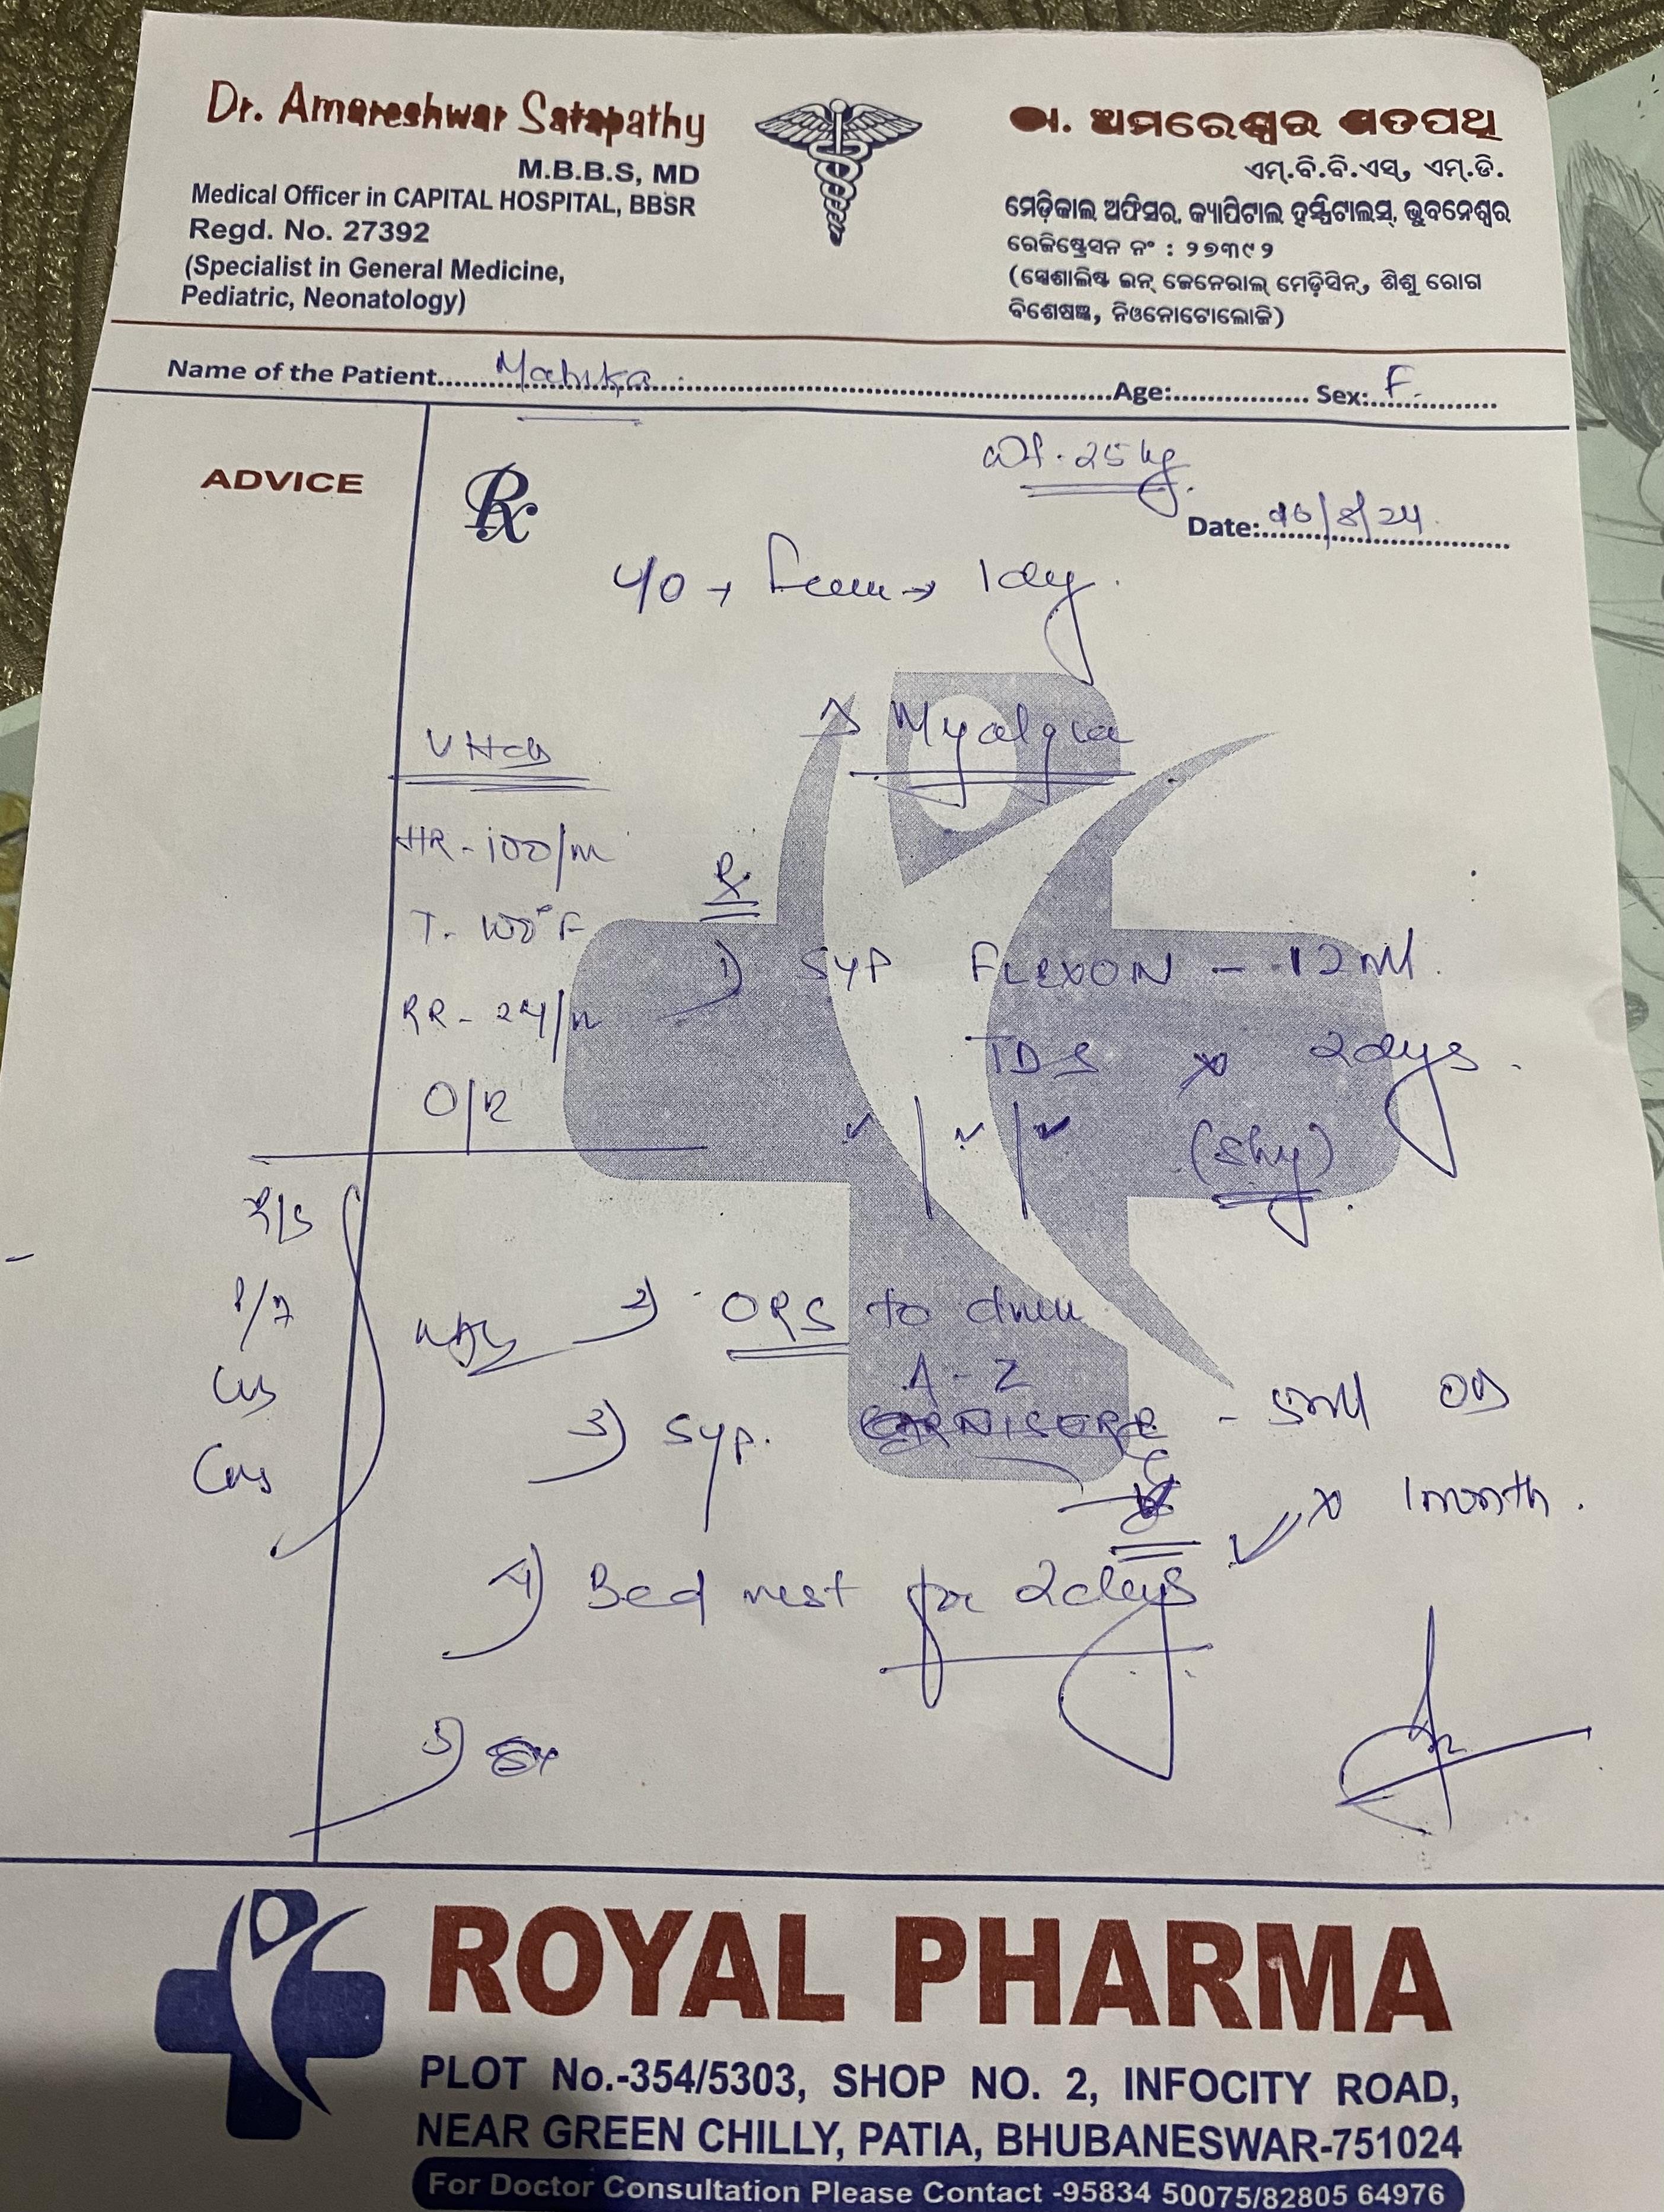 Dr. Amareshwar Satapathy
M.B.B.S, MD
Medical Officer in CAPITAL HOSPITAL, BBSR
Regd. No. 27392
(Specialist in General Medicine,
Pediatric, Neonatology)
ଡା. ଅମରେଶ୍ୱର ଶତପଥି
ଏମ୍.ବି.ବି.ଏସ୍, ଏମ୍.ଡି.
ମେଡ଼ିକାଲ ଅଫିସର, କ୍ୟାପିଟାଲ ହସ୍ପିଟାଲସ୍, ଭୁବନେଶ୍ୱର
ରେଜିଷ୍ଟ୍ରେସନ ନଂ : ୨୭୩୯୨
(ସ୍ପେଶାଲିଷ୍ଟ ଇନ୍ ଜେନେରାଲ୍ ମେଡ଼ିସିନ୍, ଶିଶୁ ରୋଗ
ବିଶେଷଜ୍ଞ, ନିଓନୋଟୋଲୋଜି)
Name of the Patient Age: Sex: F
Wt. 25 kg
ADVICE
Rx
Date: /8/24
→ → 1 day
Myalgia
HR - 100/m
T - 100°F
RR - 24/m
Rx
1) Syp FLEXON - 12 ml
TDS x 2 days
O/E
2) ORS to
A - Z
3) Syp. - 5ml OD
x 1 month.
4) Bed rest for 2 days
5)
R/S
P/A
CVS
CNS
ROYAL PHARMA
PLOT No.-354/5303, SHOP NO. 2, INFOCITY ROAD,
NEAR GREEN CHILLY, PATIA, BHUBANESWAR-751024
For Doctor Consultation Please Contact -95834 50075/82805 64976